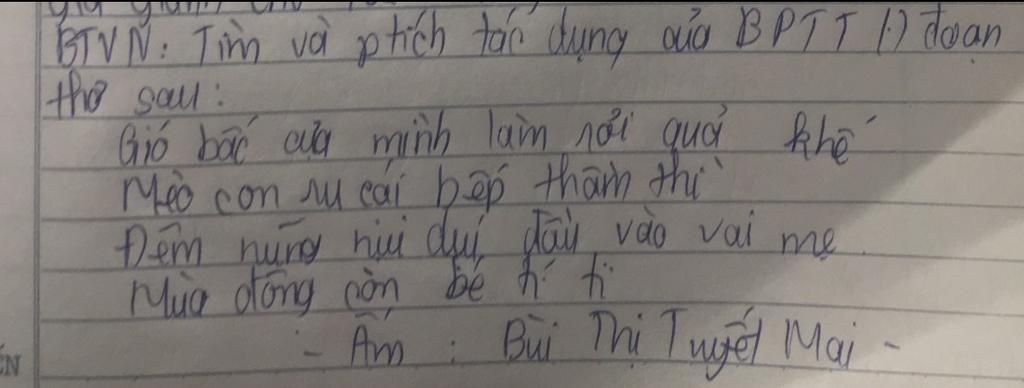 BTVN: Tìm và ptích tác dụng của BPTT (.) đoạn
thơ sau:
Gió bấc cựa mình làm rơi quả khế
Mèo con ru cái bếp thầm thì
Đêm nũng nịu dụi đầu vào vai mẹ
Mùa đông còn bé tí ti
- Ấm : Bùi Thị Tuyết Mai -